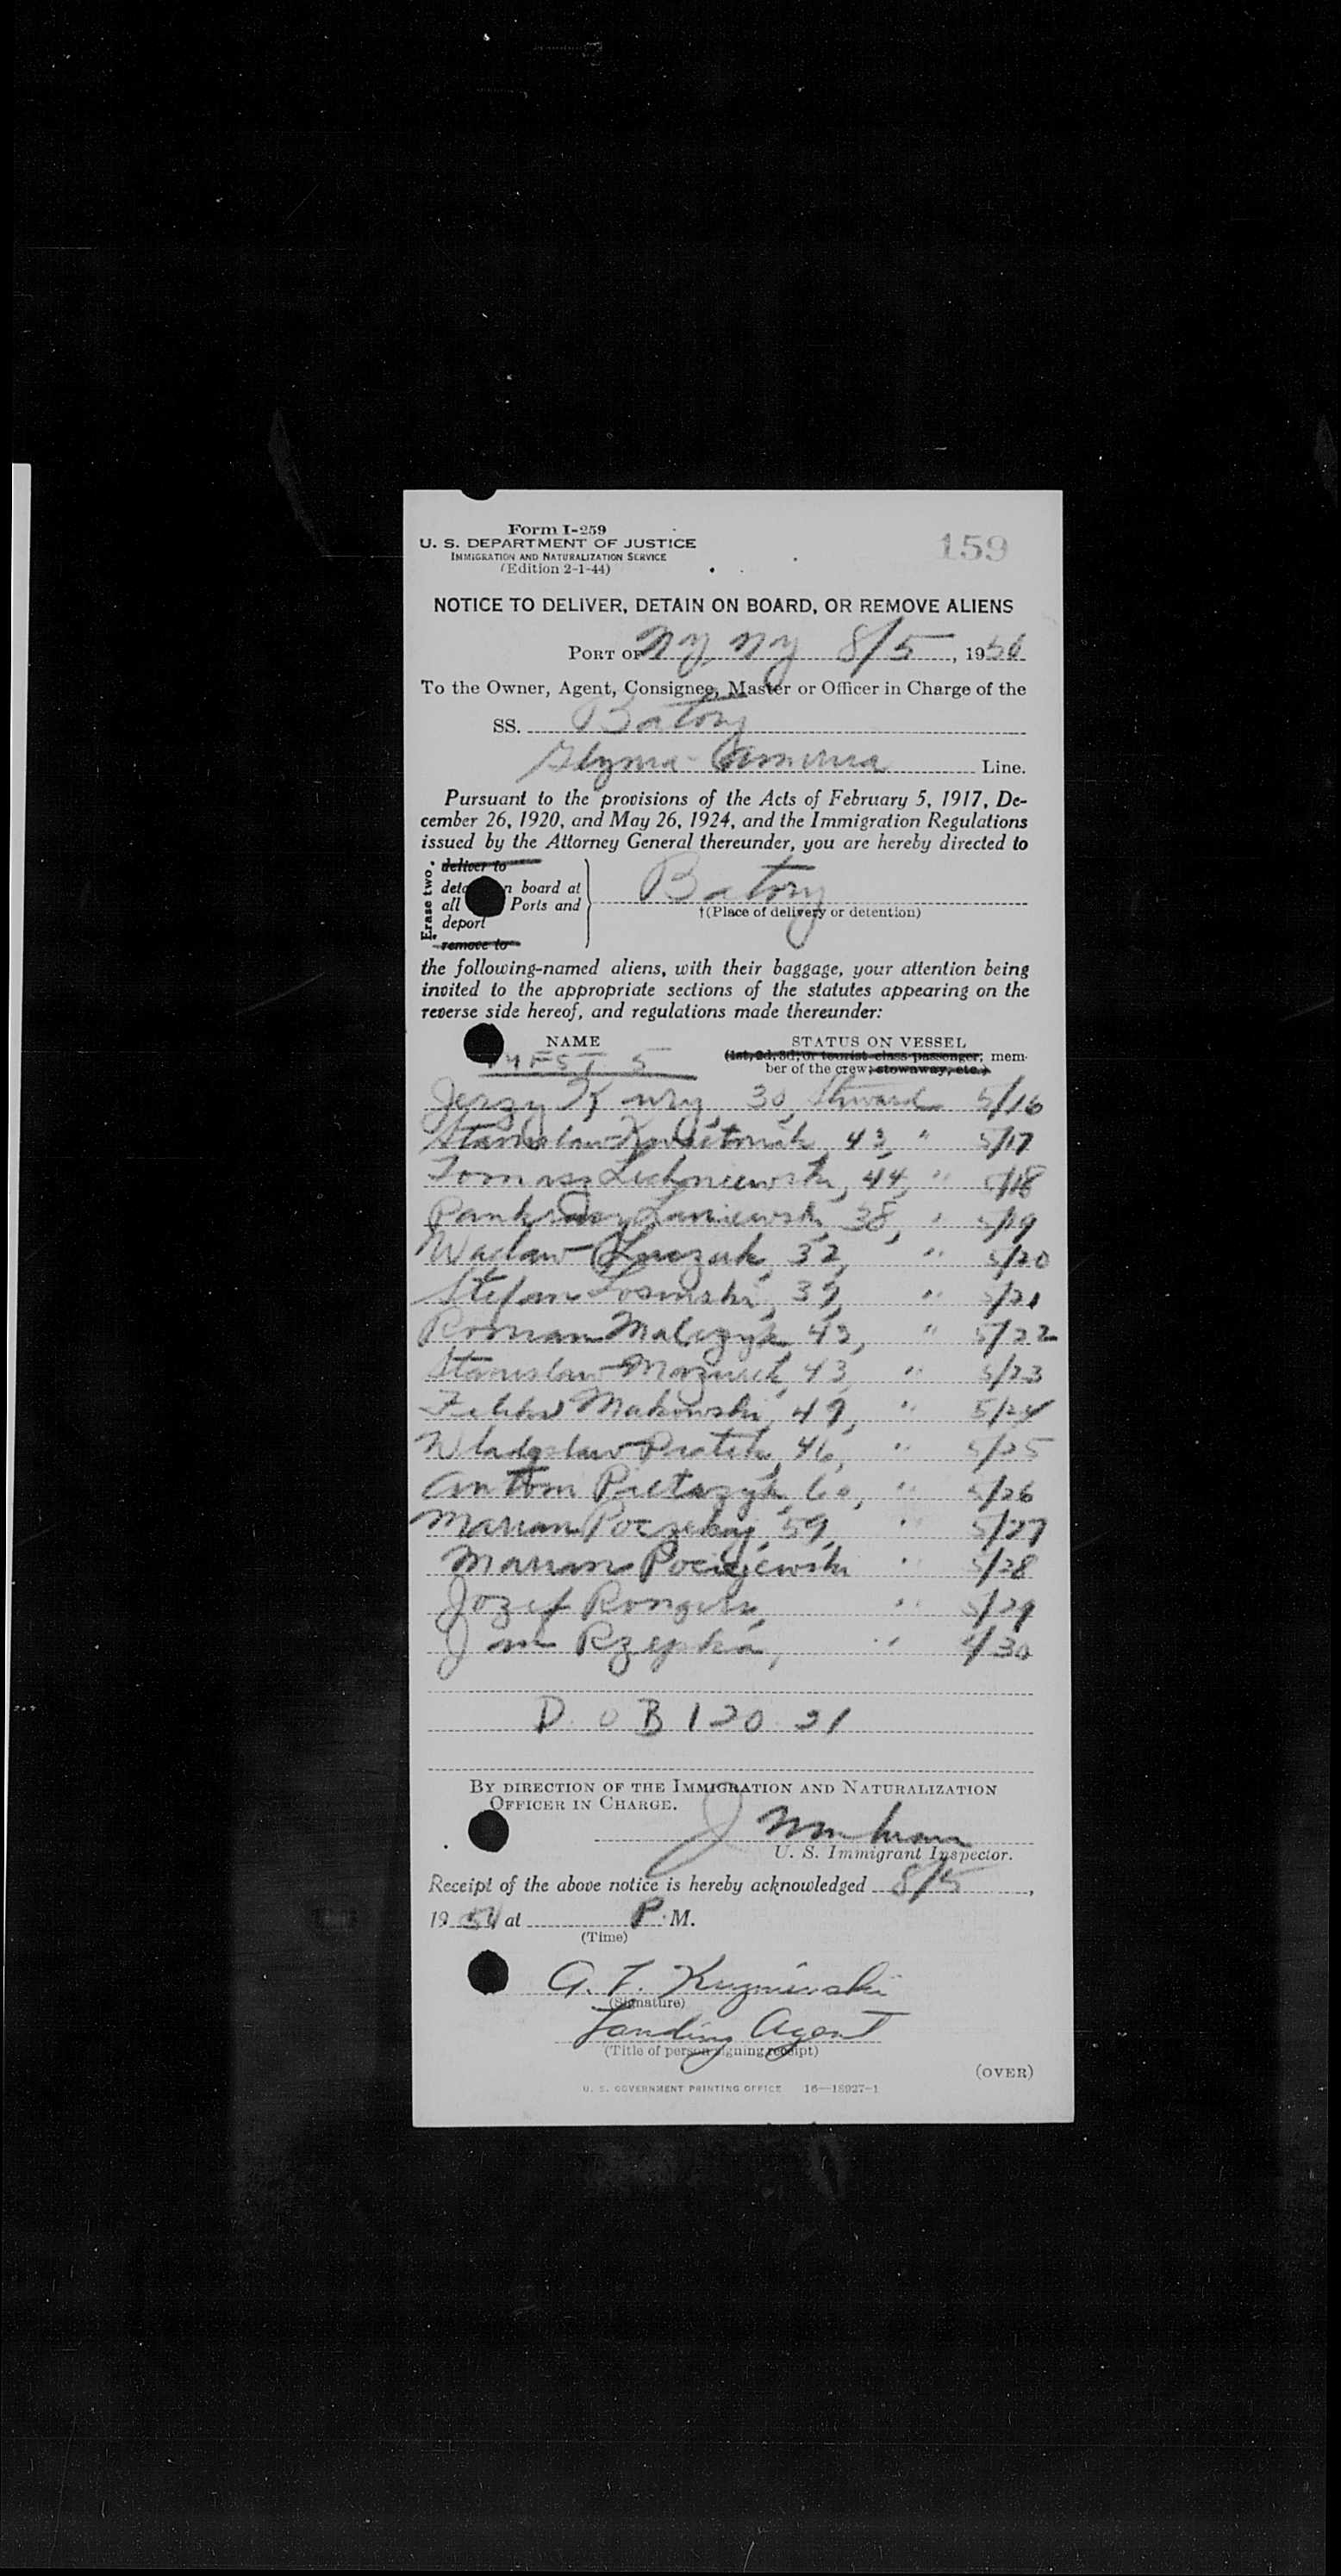 Form I-259
U. S. DEPARTMENT OF JUSTICE
IMMIGRATION AND NATURALIZATION SERVICE
(Edition 2-1-44)
159
NOTICE TO DELIVER, DETAIN ON BOARD, OR REMOVE ALIENS
PORT OF NY, NY 8/5, 1950
To the Owner, Agent, Consignee, Master or Officer in Charge of the
SS. Batory
Gdynia-America Line.
Pursuant to the provisions of the Acts of February 5, 1917, De-
cember 26, 1920, and May 26, 1924, and the Immigration Regulations
issued by the Attorney General thereunder, you are hereby directed to
Erase two.
deliver to
deta n board at
all Ports and
deport
remove to
Batory
†(Place of delivery or detention)
the following-named aliens, with their baggage, your attention being
invited to the appropriate sections of the statutes appearing on the
reverse side hereof, and regulations made thereunder:
NAME STATUS ON VESSEL
(1st, 2d, 3d, or tourist class passenger, mem-
ber of the crew, stowaway, etc.)
MFST 5
Jerzy Kury, 30, Steward 5/16
Stanislaw 43, " 5/17
Tomasz Lichniewski, 44, " 5/18
Pankracy Laniewski, 38, " 5/19
Waclaw 32, " 5/20
Stefan Losinski, 39, " 5/21
Roman Malczyk, 43, " 5/22
Stanislaw 43 " 5/23
Feliks Makowski, 49, " 5/24
Wladyslaw 46, " 5/25
Antoni Pietaszyk, 60, " 5/26
Marian Poczekaj, 59, " 5/27
Marian " 5/28
Jozef " 5/29
Jan Rzepka, " 5/30
D O B 120.21
BY DIRECTION OF THE IMMIGRATION AND NATURALIZATION
OFFICER IN CHARGE.
U. S. Immigrant Inspector.
Receipt of the above notice is hereby acknowledged 8/5,
19 at P. M.
(Time)
G. T. Kuzniewski
(Signature)
Landing Agent
(Title of person signing receipt)
(OVER)
U. S. GOVERNMENT PRINTING OFFICE 16—18927-1